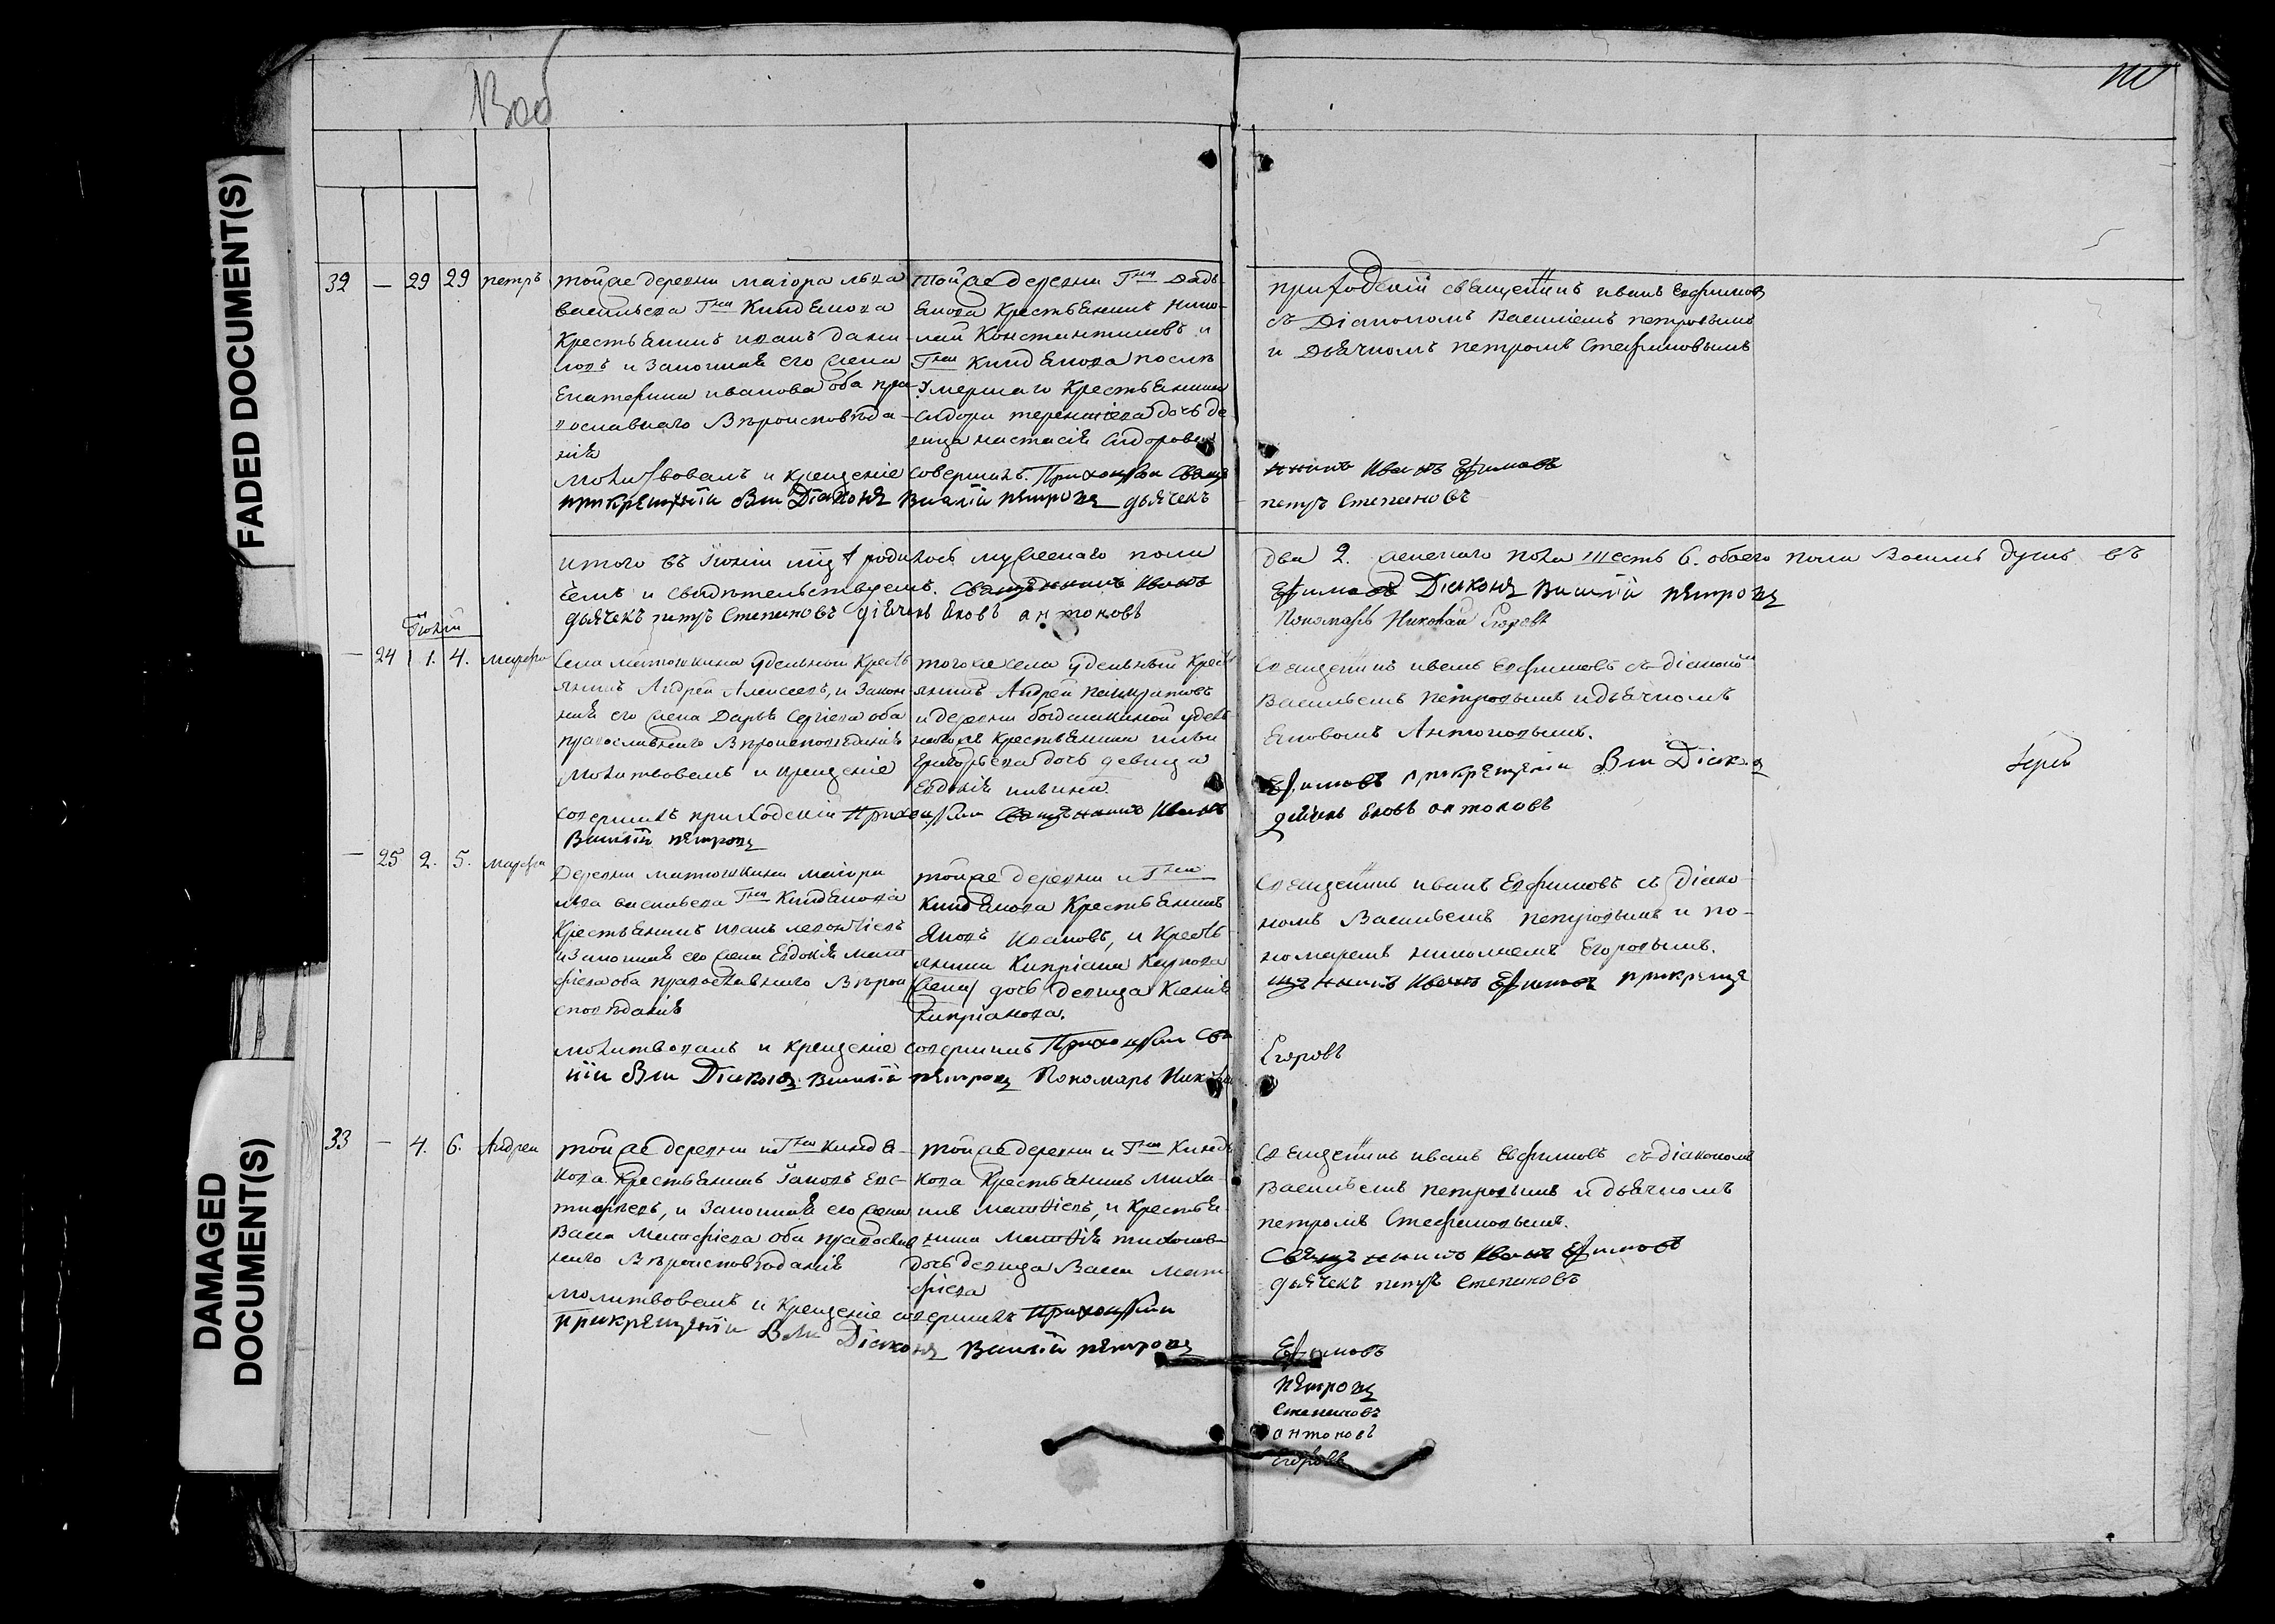 FADED DOCUMENT(S)
DAMAGED
DOCUMENT(S)
32 — 29 29 петръ
тойже деревни маiора льва
васильева Гна Киндякова
Крестьянинъ иванъ дани-
ловъ и Законная его жена
Екатерина иванова оба пра-
вославнаго Вѣроисповѣда-
нiя
Тойже деревни Гна Дадь-
Якова Крестьянинъ Нико-
лай Константиновъ и
Гна Киндякова послѣ
Умершаго Крестьянина
Сидора терентiева дочь де
вица настасiя Сидорова
приходскiй священникъ иванъ Евфимовъ
съ Дiакономъ Василiемъ петровымъ
и Дьячкомъ петромъ Стефановымъ
молитвовалъ и крещенiе совершилъ. Приходскiй Свяще
нникъ Иванъ Ефимовъ
прикрещенiи былъ Дiаконъ Василiй петровъ дьячекъ
петръ Степановъ
итого въ Iюнiи мцѣ родилось мужескаго пола
два 2. женскаго пола шесть 6. обоего пола восемь душъ въ
чемъ и свидѣтельствуемъ. Священникъ Иванъ
Ефимовъ Дiаконъ Василiй петровъ
дьячекъ петръ Степановъ дiячекъ Яковъ антоновъ
Пономарь Николай Егоровъ
Iюлiй
— 24 1. 4. марфа
Села матюшкина удельной Кресть
янинъ Андрей Алексеевъ, и Закон-
ная его жена Дарья Сергiева оба
православнаго Вѣроисповѣданiя
тогоже села удельный Кресть
янинъ Андрей Панкратовъ
и деревни богдашкиной удель
наго Крестьянина ильи
Григорьева дочь девица
Евдокiя ильина
Священникъ иванъ Евфимовъ съ дiакономъ
Васильемъ Петровымъ и дьячкомъ
Яковомъ Антоновымъ.
Молитвовалъ и крещенiе
совершилъ приходскiй Приходскiй Священникъ Иванъ
Ефимовъ прикрещенiи былъ Дiаконъ
Iерей
Василiй петровъ
дiячекъ Яковъ антоновъ
— 25 2. 5. марфа
Деревни матюшкина маiора
льва васильева Гна Киндякова
Крестьянинъ иванъ леонтiевъ
и Законная его жена Евдокiя мат
фiева оба православнаго Вѣрои
споведанiя
тойже деревни и Гна
Киндякова Крестьянинъ
Яковъ Ивановъ, и Кресть
янина Кипрiана Карпова
дочь девица Ксенiя
Кипрiанова.
Священникъ иванъ Евфимовъ съ дiако-
номъ Васильемъ петровымъ и по-
номаремъ николаемъ Егоровымъ.
молитвовалъ и крещенiе совершилъ Приходскiй Свя
щенникъ Иванъ Ефимовъ прикреще
нiи былъ Дiаконъ Василiй петровъ Пономарь Николай
Егоровъ
33 — 4. 6. Андрей
тойже деревни и Гна Киндя-
кова Крестьянинъ Iаковъ Евс-
тифѣевъ, и Законная его жена
Васа Матфiева оба православ
наго Вѣроисповѣданiя
тойже деревни и Гна Киндя
кова Крестьянинъ Миха-
илъ матвiевъ, и Крестья-
нина Матвiя тихонова
дочь девица Васа мат-
фiева
Священникъ иванъ Евфимовъ съ дiакономъ
Васильемъ петровымъ и дьячкомъ
петромъ Стефановымъ.
молитвовалъ и Крещенiе совершилъ Приходскiй
Священникъ Иванъ Ефимовъ
прикрещенiи былъ Дiаконъ Василiй петровъ
дьячекъ петръ Степановъ
Ефимовъ
петровъ
Степановъ
антоновъ
Егоровъ